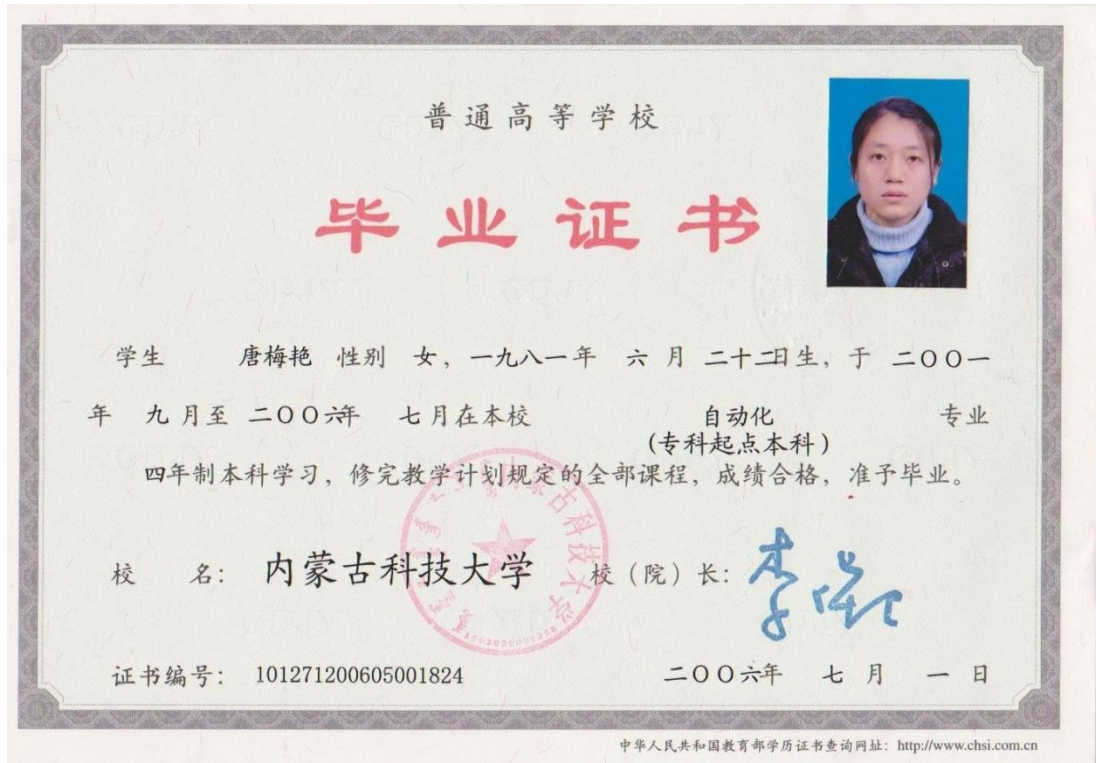 普通高等学校
毕业证书
学生 唐梅艳 性别 女，一九八一年 六 月 二十二日生，于 二〇〇一
年 九 月至 二〇〇六年 七 月在本校 自动化 专业
(专科起点本科)
四年制本科学习，修完教学计划规定的全部课程，成绩合格，准予毕业。
内蒙古科技大学
校 名： 内蒙古科技大学 校（院）长：
证书编号： 101271200605001824 二〇〇六年 七 月 一 日
中华人民共和国教育部学历证书查询网址：http://www.chsi.com.cn